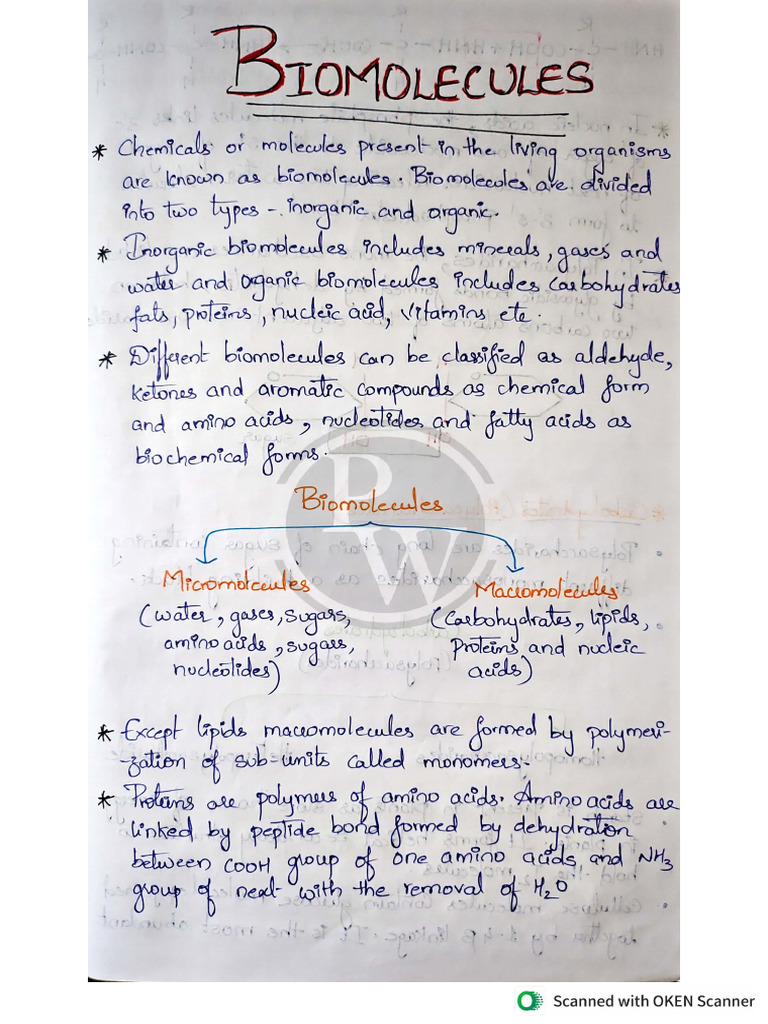 BIOMOLECULES
* Chemicals or molecules present in the living organisms
are known as biomolecules. Biomolecules are divided
into two types - inorganic and organic.
* Inorganic biomolecules includes minerals, gases and
water and organic biomolecules includes carbohydrates
fats, proteins, nucleic acid, vitamins etc.
* Different biomolecules can be classified as aldehyde,
ketones and aromatic compounds as chemical form
and amino acids, nucleotides and fatty acids as
biochemical forms.
PW
Biomolecules
Micromolecules
(water, gases, sugars,
amino acids, sugars,
nucleotides)
Macromolecules
(carbohydrates, lipids,
Proteins and nucleic
acids)
* Except lipids macromolecules are formed by polymeri-
-zation of sub-units called monomers:-
* Proteins are polymers of amino acids. Amino acids are
linked by peptide bond formed by dehydration
between COOH group of one amino acids and NH3
group of next with the removal of H2O
Scanned with OKEN Scanner